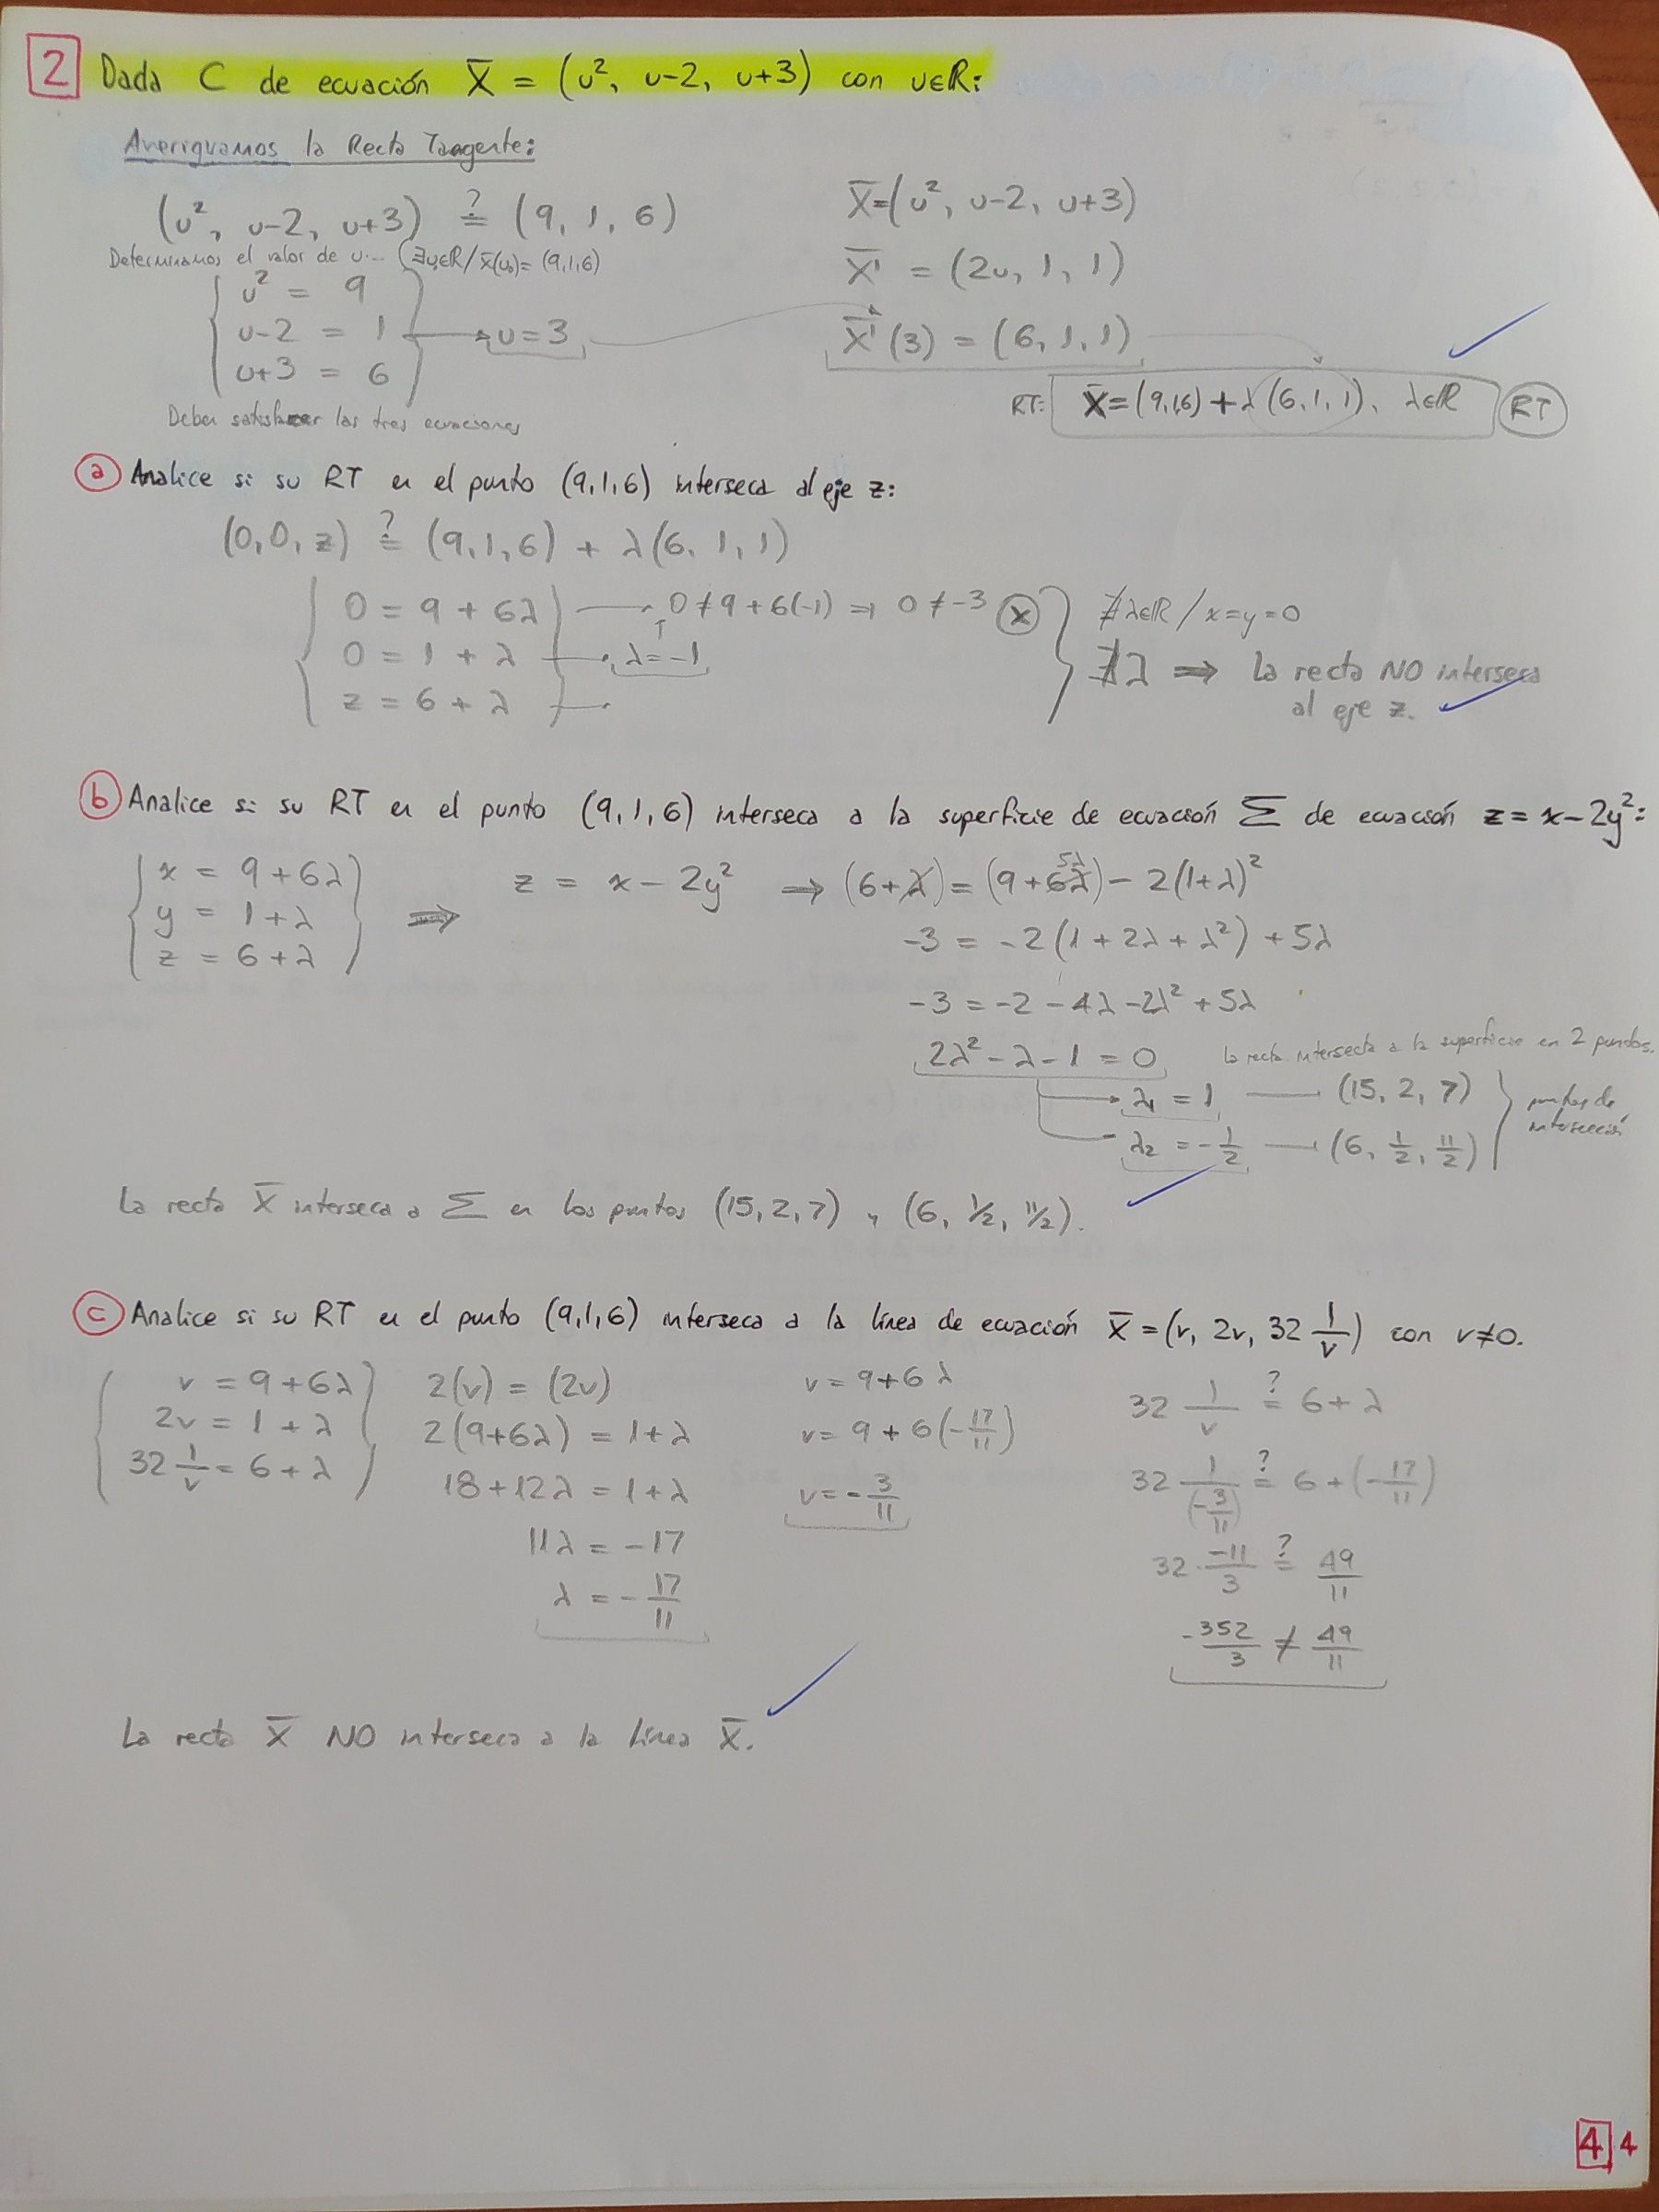 2 Dada C de ecuación X̄ = (u², u-2, u+3) con u∈ℝ:
Averiguamos la Recta Tangente:
(u², u-2, u+3) ≟ (9, 1, 6)
Determinamos el valor de u... (∃u₀∈ℝ / x̄(u₀) = (9,1,6)
u² = 9
u-2 = 1 → u=3
u+3 = 6
Deben satisfacer las tres ecuaciones
X̄=(u², u-2, u+3)
X̄' = (2u, 1, 1)
X̄'(3) = (6, 1, 1)
RT: X̄=(9,1,6) + λ(6,1,1), λ∈ℝ RT
a Analice si su RT en el punto (9,1,6) interseca al eje z:
(0,0,z) ≟ (9,1,6) + λ(6,1,1)
0 = 9 + 6λ → 0 ≠ 9+6(-1) ⇒ 0 ≠ -3 ⓧ
0 = 1 + λ → λ=-1
z = 6 + λ →
∄λ∈ℝ / x=y=0
∄λ ⇒ La recta NO interseca
al eje z.
b Analice si su RT en el punto (9,1,6) interseca a la superficie de ecuación Σ de ecuación z = x-2y²:
x = 9+6λ
y = 1+λ
z = 6+λ
⇒ z = x-2y² ⇒ (6+λ) = (9+6λ) - 2(1+λ)²
5λ
-3 = -2(1+2λ+λ²) + 5λ
-3 = -2 - 4λ - 2λ² + 5λ
2λ² - λ - 1 = 0 la recta intersecta a la superficie en 2 puntos.
λ₁ = 1 — (15, 2, 7)
λ₂ = -1/2 — (6, 1/2, 11/2)
puntos de
intersección
La recta X̄ interseca a Σ en los puntos (15,2,7) y (6, 1/2, 11/2).
c Analice si su RT en el punto (9,1,6) interseca a la línea de ecuación X̄ = (v, 2v, 32 1/v) con v≠0.
v = 9+6λ
2v = 1 + λ
32 1/v = 6 + λ
2(v) = (2v)
2(9+6λ) = 1+λ
18+12λ = 1+λ
11λ = -17
λ = -17/11
v = 9+6λ
v = 9 + 6(-17/11)
v = -3/11
32 1/v ≟ 6+λ
32 1/(-3/11) ≟ 6 + (-17/11)
32 · -11/3 ≟ 49/11
-352/3 ≠ 49/11
La recta X̄ NO interseca a la línea X̄.
4 4